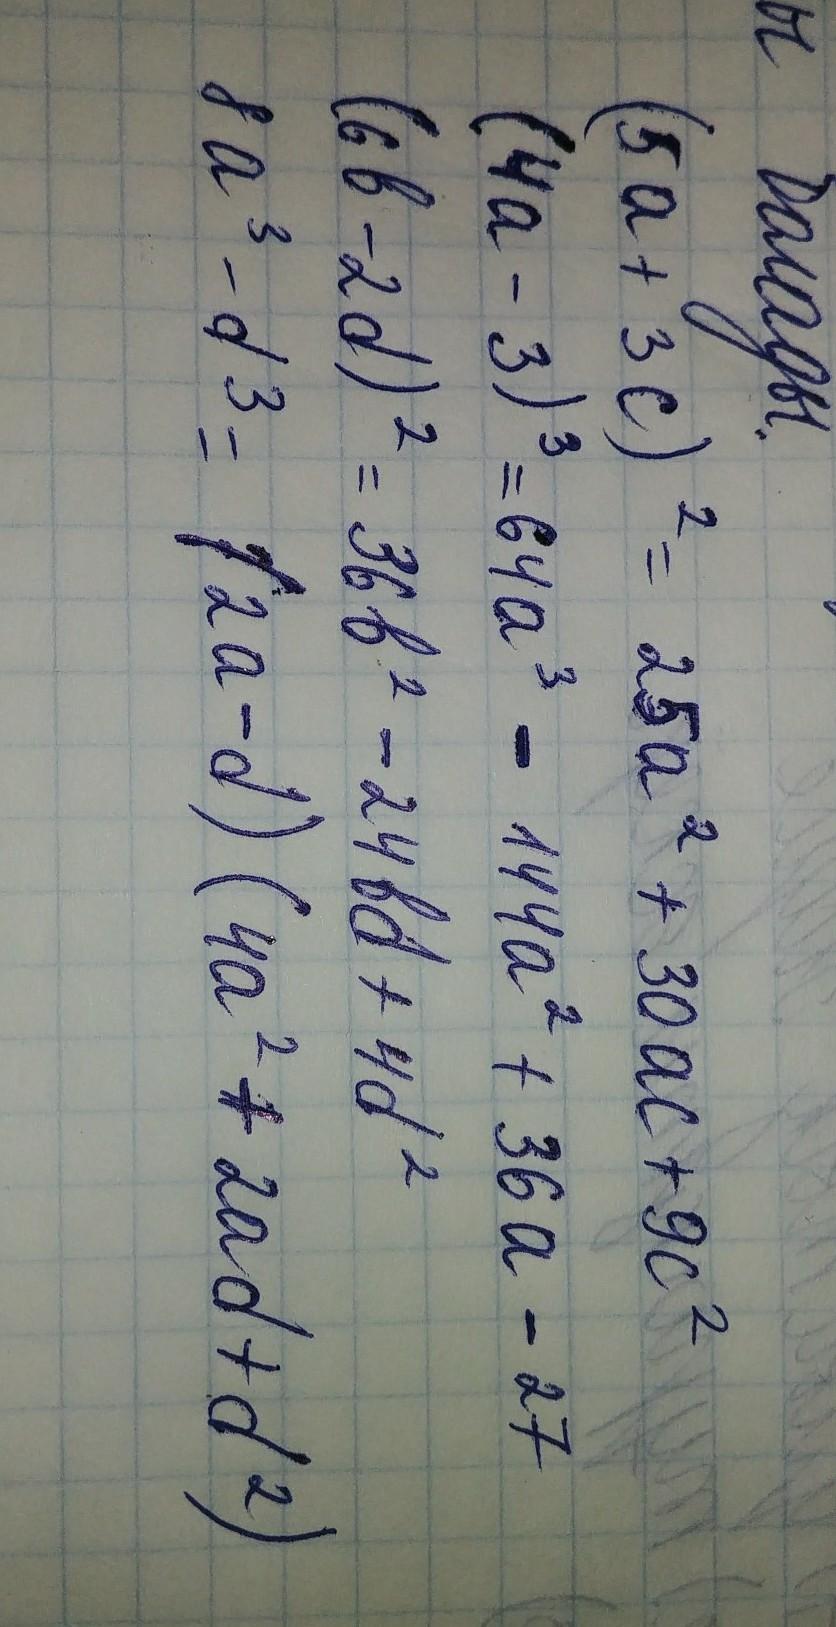 ы
(5a + 3c)² = 25a² + 30ac + 9c²
(4a - 3)³ = 64a³ - 144a² + 36a - 27
(6b - 2d)² = 36b² - 24bd + 4d²
8a³ - d³ = (2a - d)(4a² + 2ad + d²)